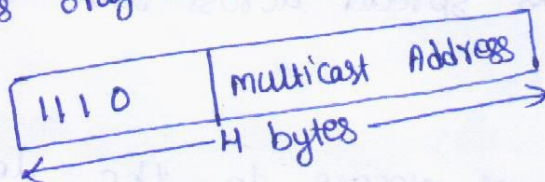 only
1110 multicast Address
4 bytes